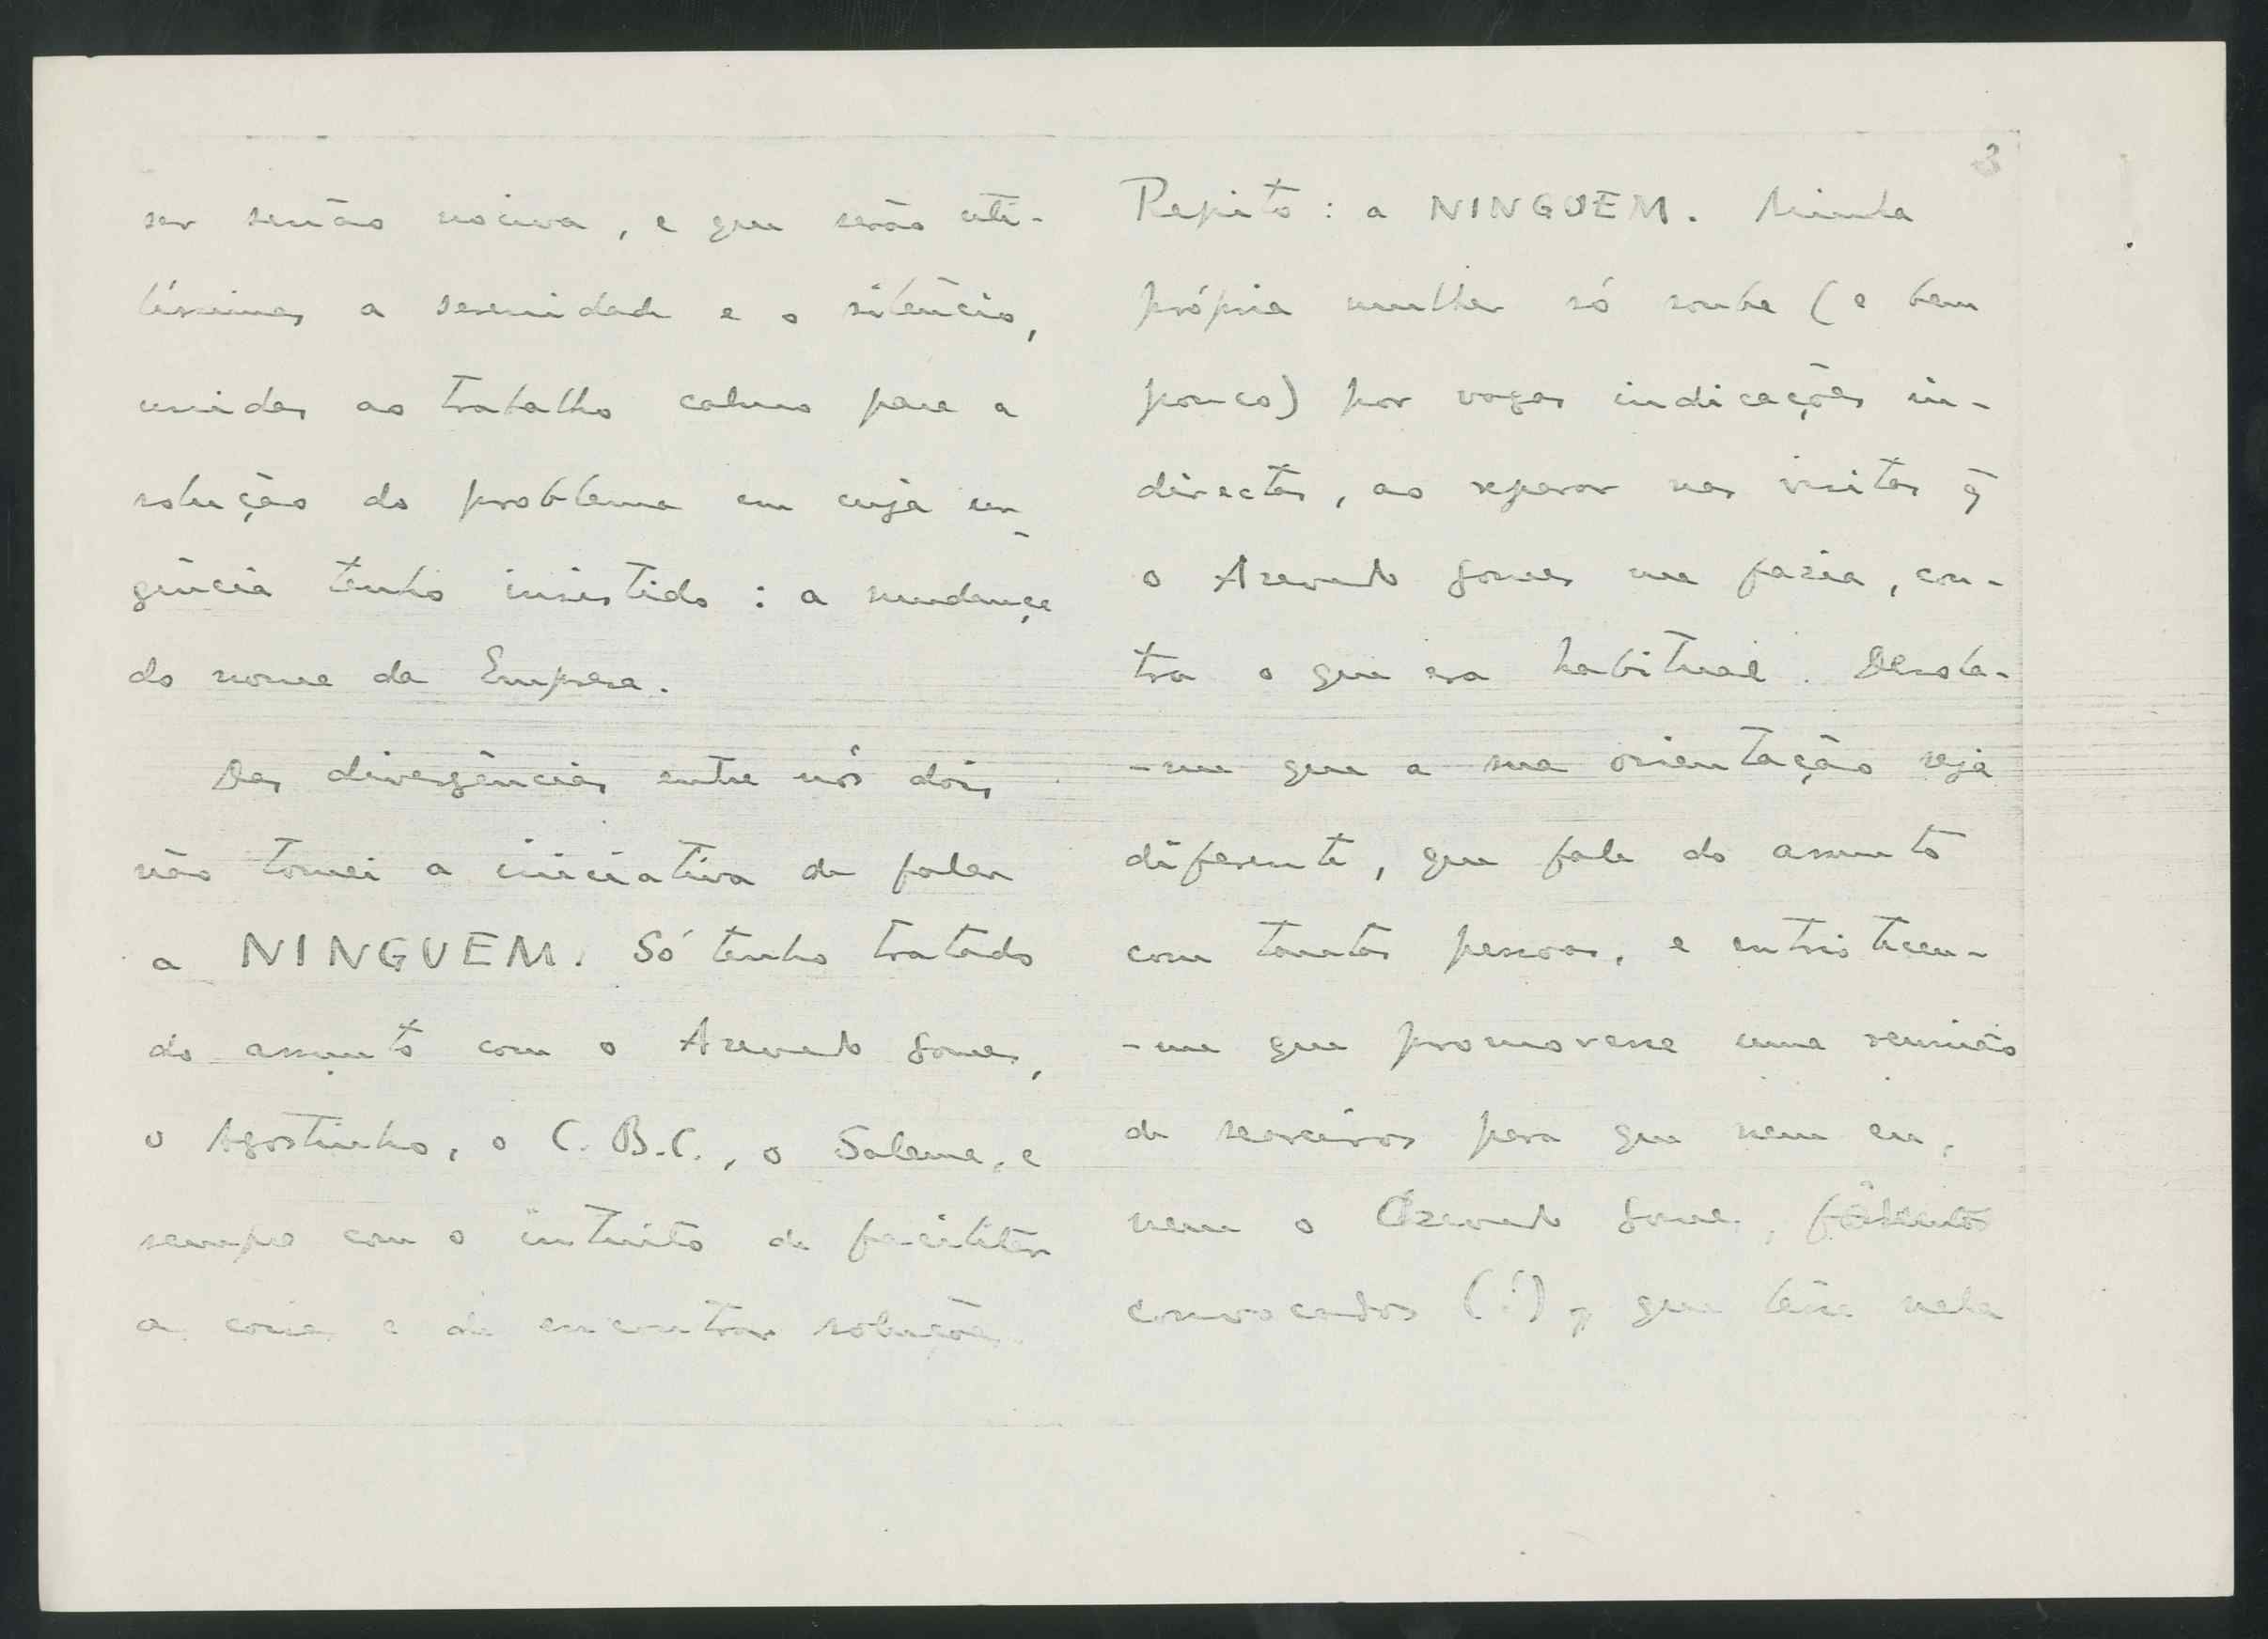 ser senão nociva, e que serão uti-
líssimas a serenidade e o silêncio,
unidas ao trabalho calmo para a
solução do problema em cuja ur-
gência tenho insistido : a mudança
do nome da Empresa.
Das divergências entre nós dois
não tomei a iniciativa de falar
a NINGUEM. Só tenho tratado
do assunto com o Azevedo Gomes,
o Agostinho, o C. B. C., o Salema, e
sempre com o intuito de facilitar
a coisa e de encontrar soluções.
3
Repito : a NINGUEM. Minha
própria mulher só soube (e bem
pouco) por vagas indicações in-
directas, ao reparar nas visitas q̃
o Azevedo Gomes me fazia, con-
tra o que era habitual. Desola-
-me que a sua orientação seja
diferente, que fale do assunto
com tantas pessoas, e entristeceu-
-me que promovesse uma reunião
de seareiros para que nem eu,
nem o Azevedo Gomes, fôssemos
convocados (!), que leia nela